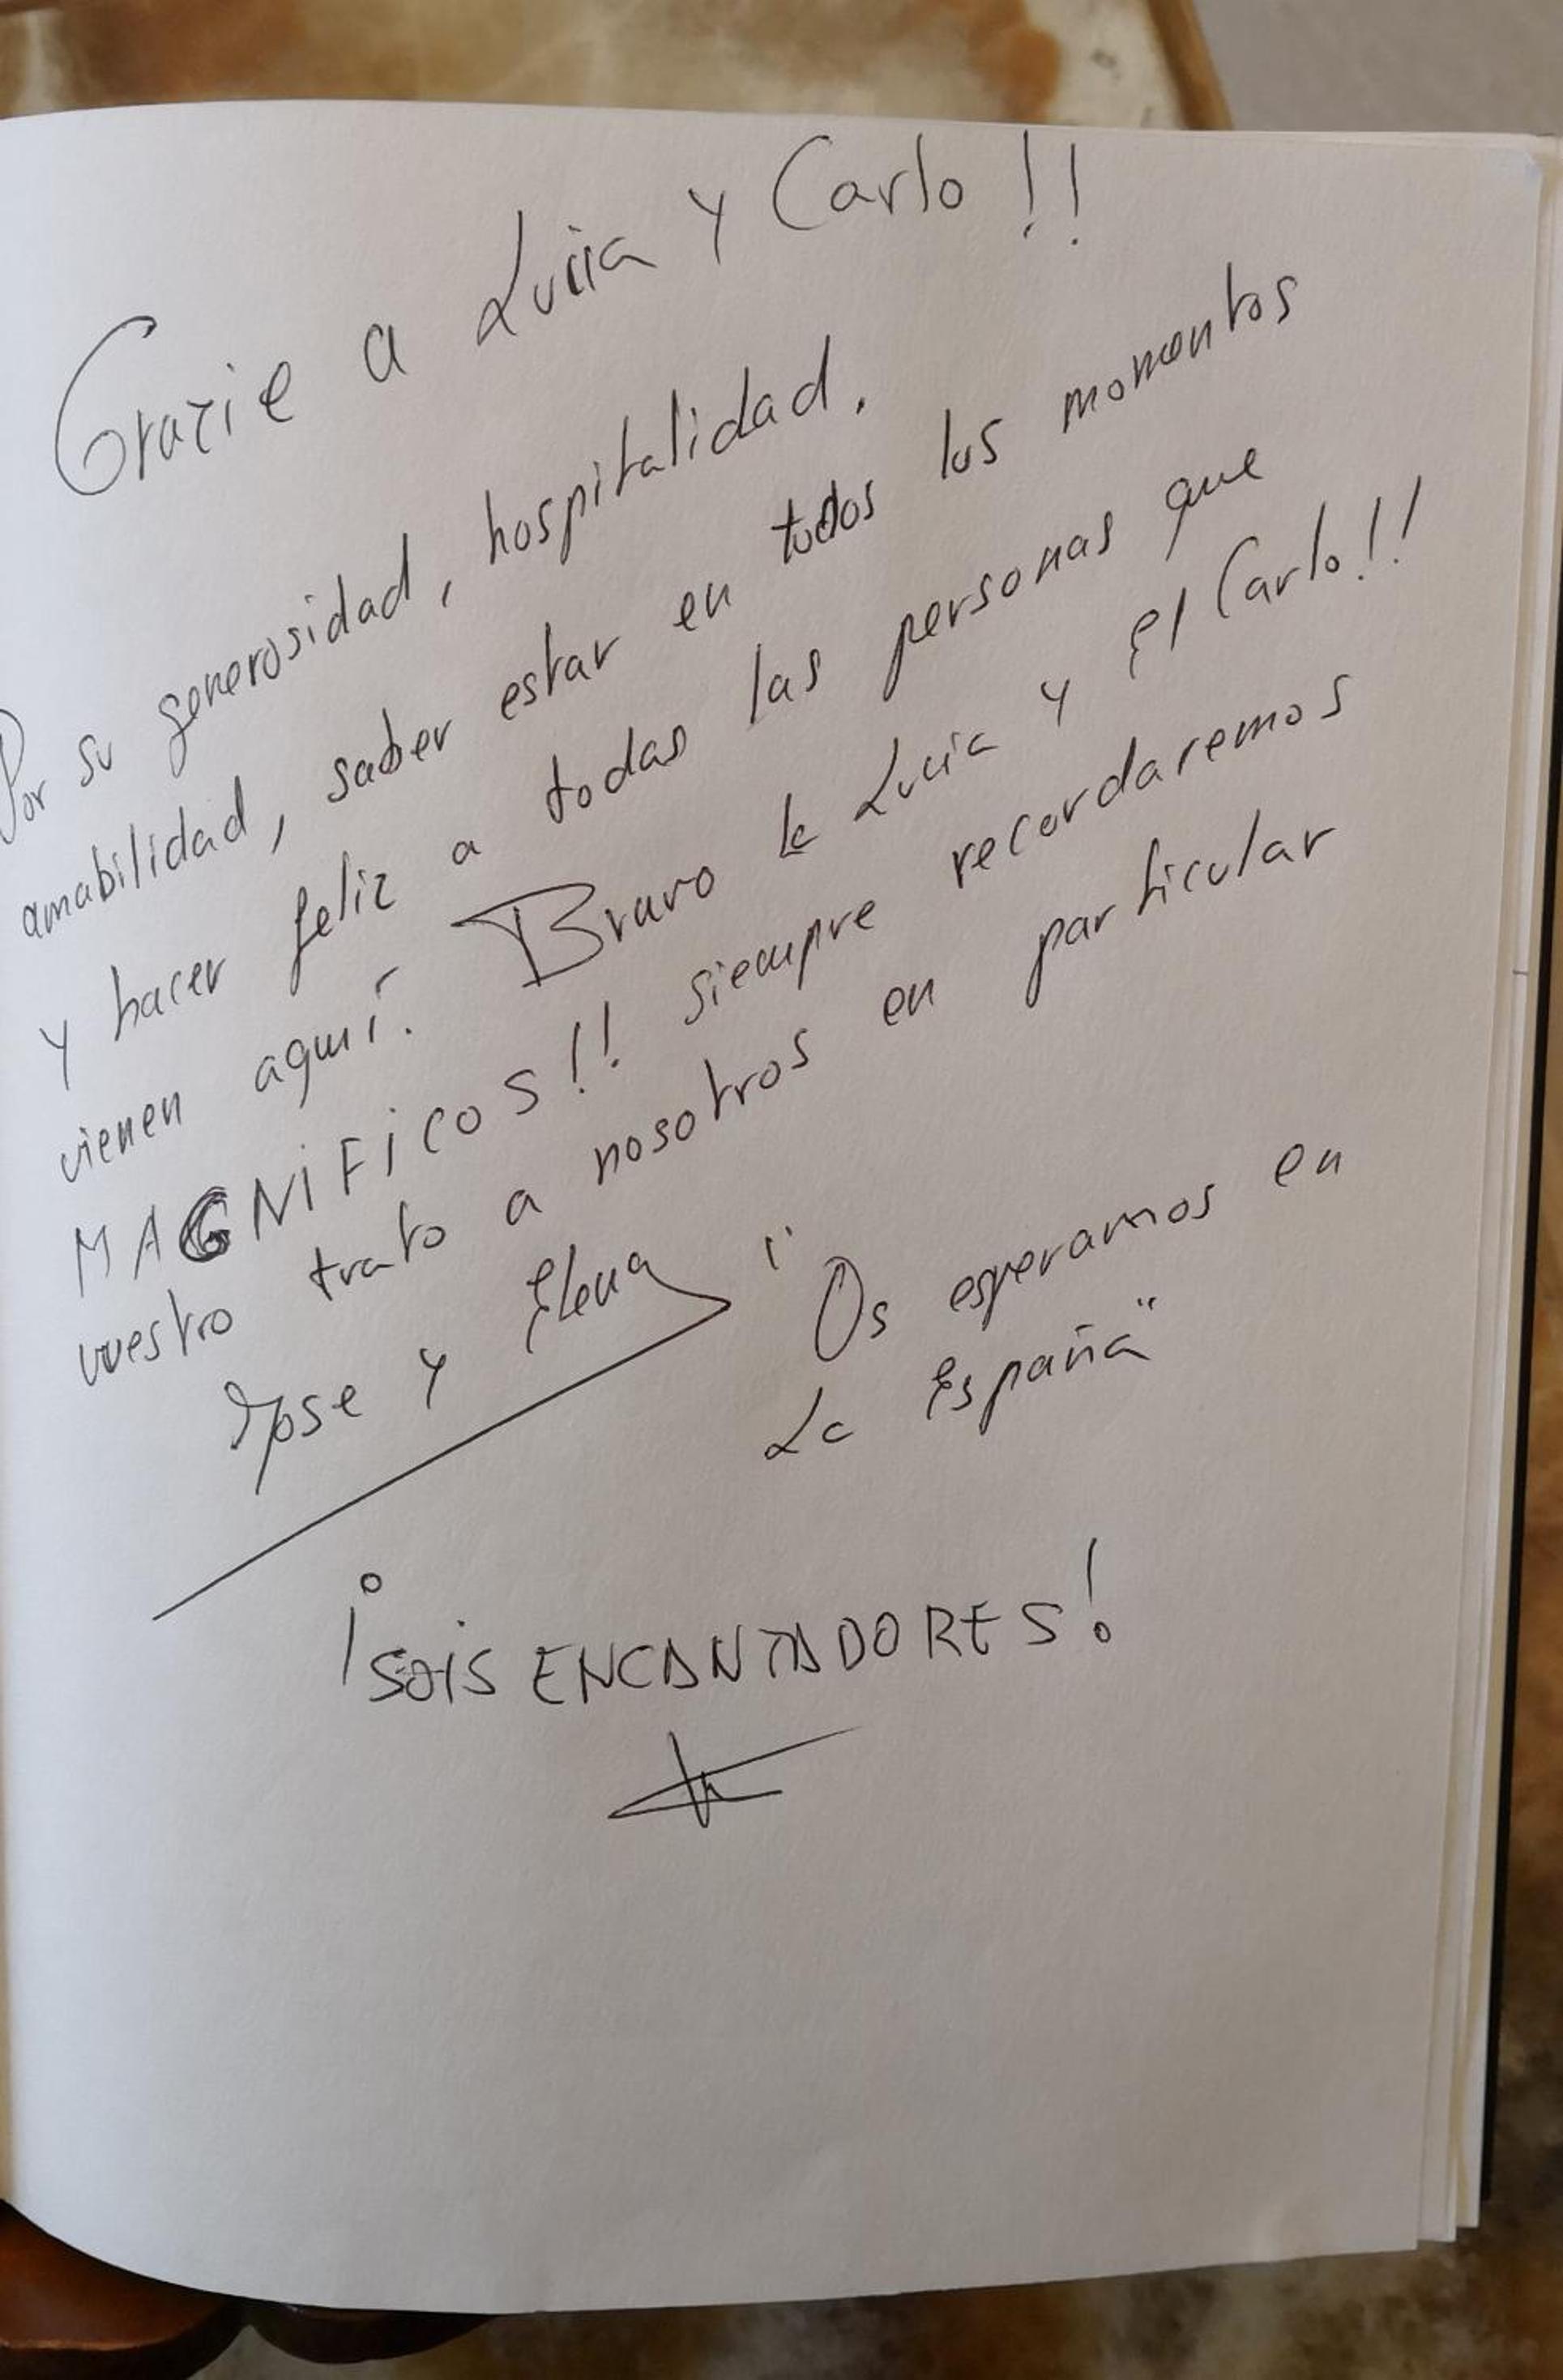 Grazie a Lucia y Carlo!!
Por su generosidad, hospitalidad,
amabilidad, saber estar en todos los momentos
y hacer feliz a todas las personas que
vienen aquí. Bravo la Lucia y el Carlo!!
MAGNIFICOS!! siempre recordaremos
vuestro trato a nosotros en particular
Jose y Elena
"Os esperamos en
La España"
¡SOIS ENCANTADORES!